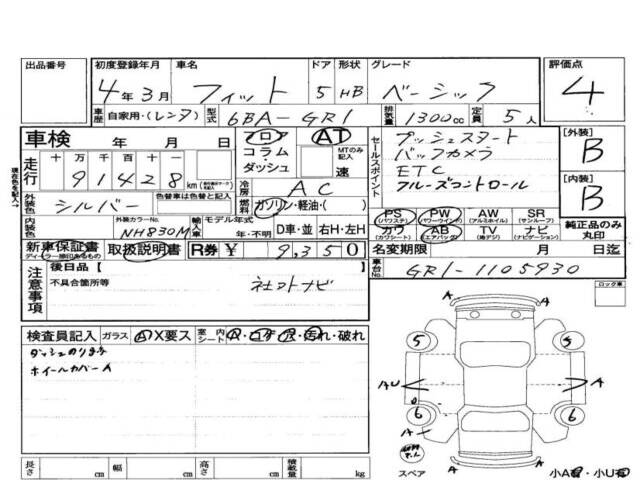 出品番号 初度登録年月 車名 ドア 形状 グレード 評価点
4年3月 フィット 5 HB ベーシック 4
車歴 自家用・(レンタ) 型式 6BA-GR1 排気量 1300cc 定員 5人
車検 年 月 日 フロア コラム・ダッシュ AT MTのみ記入 速
セールスポイント プッシュスタート
バックカメラ
ETC
クルーズコントロール
[外装] B
[内装] B
現在色を記入→
走行 十 万 千 百 十 一
91428km
冷房 AC
外装色 シルバー 色替車は色替と記入 燃料 ガソリン・軽油・( )
内装色 外装カラーNo. NH830M 輸入車 モデル年式 年・不明 D車・並 右H・左H
PS (パワステ) PW (パワーウインド) AW (アルミホイル) SR (サンルーフ)
カワ (カワシート) AB (エアバック) TV (地デジ) ナビ (ナビゲーション) 純正品のみ丸印
新車保証書 ディーラー捺印あるもの 取扱説明書 R券 ¥ 9,350 名変期限 月 日迄
注意事項 後日品【
不具合箇所等 社外ナビ
車台No. GR1-1105930
ロック車
検査員記入 ガラス A X要ス 室内シート A・コゲ・汚れ・破れ
ダッシュのりあと
ホイールカバーA
5 5
AU A A
6 6
A A
スペア 小A有・小U有
長さ cm 幅 cm 高さ cm 積載量 kg